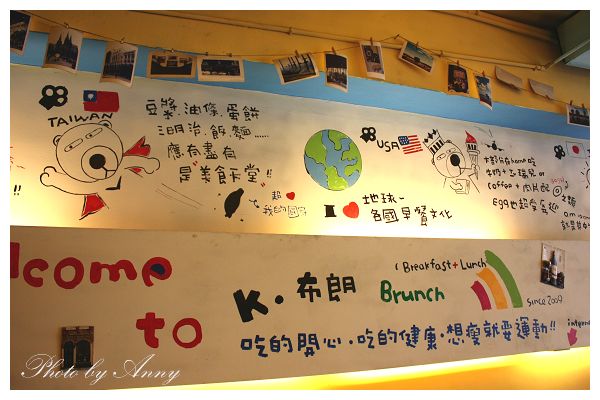 TAIWAN
豆漿.油條.蛋餅
三明治.飯.麵......
應有盡有
是美食天堂!!
超
我的國家
USA
地球一
各國早餐文化
coffee + 肉片
since 2009
Welcome
to
K.布朗
(Breakfast + Lunch
Brunch
吃的開心.吃的健康.想瘦就要運動!!
Photo by Anny